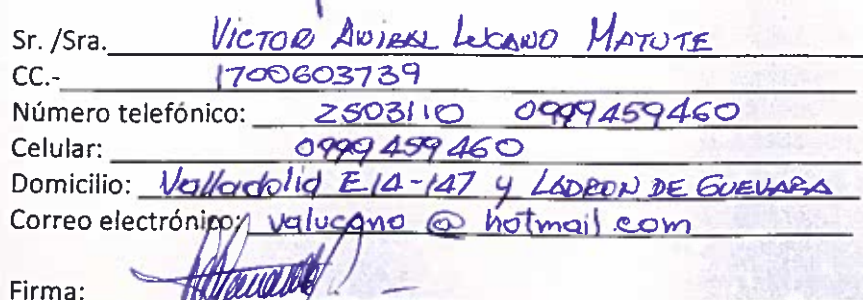 Sr. /Sra. VICTOR ANIBAL LUCANO MATUTE
CC.- 1700603739
Número telefónico: 2503110 0999459460
Celular: 0999 459 460
Domicilio: Valladolid E14-147 y LADRON DE GUEVARA
Correo electrónico: valucano @ hotmail.com
Firma: